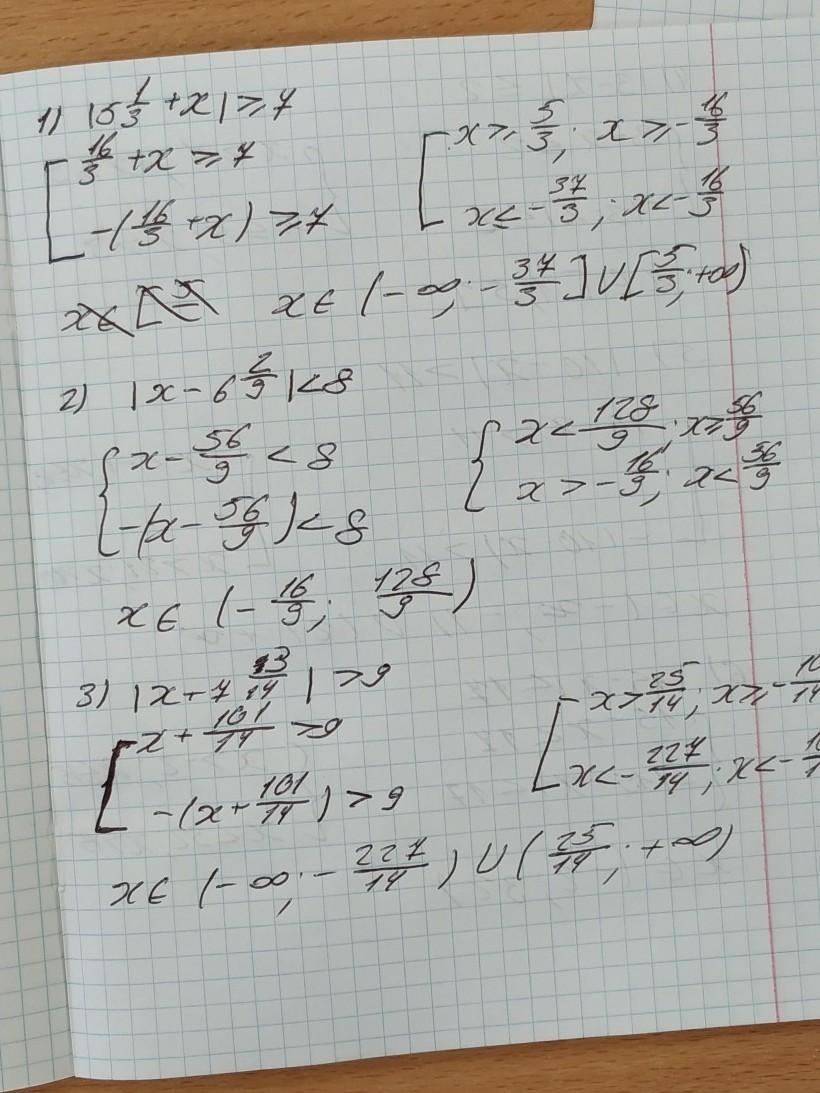 1) |5 1/3 + x| ≥ 7
[ 16/3 + x ≥ 7
-(16/3 + x) ≥ 7
[ x ≥ 5/3; x ≥ -16/3
x ≤ -37/3; x < -16/3
x ∈ (-∞; -37/3] ∪ [5/3; +∞)
2) |x - 6 2/9| < 8
{ x - 56/9 < 8
-(x - 56/9) < 8
{ x < 128/9; x ≥ 56/9
x > -16/9; x < 56/9
x ∈ (-16/9; 128/9)
3) |x + 7 3/14| > 9
[ x + 101/14 > 9
-(x + 101/14) > 9
[ x > 25/14; x ≥ -10/14
x < -227/14; x < -10/1
x ∈ (-∞; -227/14) ∪ (25/14; +∞)